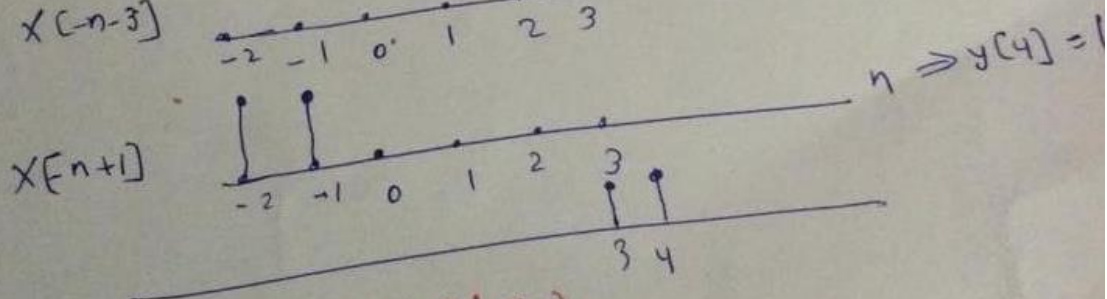 x[-n-3]
-2 -1 0 1 2 3
n ⇒ y[4] = 1
x[-n+1]
-2 -1 0 1 2 3
3 4